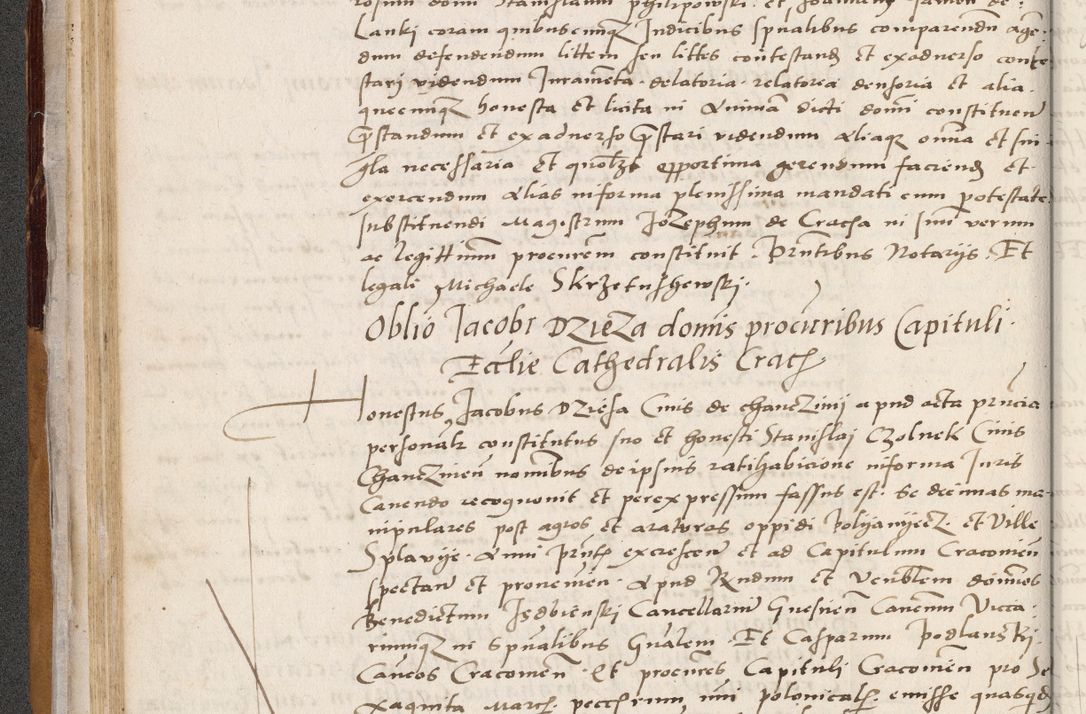 rosum domi Stanislaum philipowski et Joannem Jarmen de
Lanki coram quibuscunqz Iudicibus spualibus comparendū agen
dum defendendum littem seu littes contestand et exadverso conte
stari videndum Iuramēta delatoria relatorea densoria et alia
queecunqz honesta et licita in Animā dicti domi constituen
pstandum et exadverso pstari videndum aliaqz omia et sin
gla necessaria et quolzt opportuna gerendum faciend et
exercendum Alias informa plenissima mandati cum potestate
substituendi Magistrum Jozephum de Cracha in suū verum
ac legittimum procurem constituit. Pntibus Notarijs Et
legali Michaele Skrzetushewski.
Oblio Jacobi Dzieza domis procuribus Capituli
Ecclie Cathedralis Crach
Honestus Jacobus Dziesa Civis de Chanczinij apud acta pncia
personalr constitutus suo et honesti Stanislaj Czolnek Civis
Chanczinen nomibus de ipsius ratihabicione informa Iuris
Cavendo recognovit et per expressum fassus est. Se decimas ma
nipulares post agros et araturas oppidi Polijanijecz et Ville
Splavije Anni pntis excrescen et ad Capitulum Cracovien
spectan et provenien. Apud Rndum et Venblem dominos
Benedictum Isdbienski Cancellariū Gnesnen Canonm Vicca
riumqz in Spualibus Gnalem Et Casparum Podlanski
Cancos Cracovien Et procures Capituli Cracovien pro Se
xaginta Marc peccuniarum nui polonicalr emisse quasqd